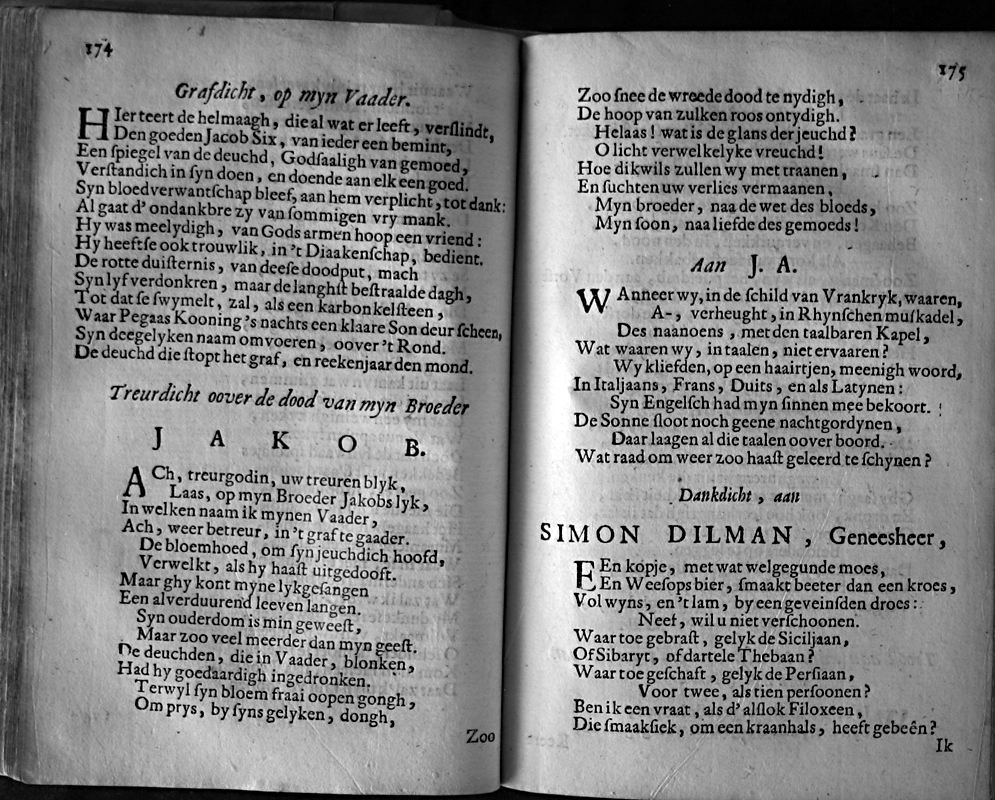 174
Grafdicht, op myn Vaader.
HIer teert de helmaagh, die al wat er leeft, verſlindt,
Den goeden Jacob Six, van ieder een bemint,
Een ſpiegel van de deuchd, Godſaaligh van gemoed,
Verſtandich in ſyn doen, en doende aan elk een goed.
Syn bloedverwantſchap bleef, aan hem verplicht, tot dank:
Al gaat d' ondankbre zy van ſommigen vry mank.
Hy was meelydigh, van Gods armen hoop een vriend:
Hy heeftſe ook trouwlik, in 't Diaakenſchap, bedient.
De rotte duiſternis, van deeſe doodput, mach
Syn lyf verdonkren, maar de langhſt beſtraalde dagh,
Tot dat ſe ſwymelt, zal, als een karbonkelſteen,
Waar Pegaas Kooning 's nachts een klaare Son deur ſcheen,
Syn deegelyken naam omvoeren, oover 't Rond.
De deuchd die ſtopt het graf, en reekenjaar den mond.
Treurdicht oover de dood van myn Broeder
JAKOB.
ACh, treurgodin, uw treuren blyk,
Laas, op myn Broeder Jakobs lyk,
In welken naam ik mynen Vaader,
Ach, weer betreur, in 't graf te gaader.
De bloemhoed, om ſyn jeuchdich hoofd,
Verwelkt, als hy haaſt uitgedooft.
Maar ghy kont myne lykgeſangen
Een alverduurend leeven langen.
Syn ouderdom is min geweeſt,
Maar zoo veel meerder dan myn geeſt.
De deuchden, die in Vaader, blonken,
Had hy goedaardigh ingedronken.
Terwyl ſyn bloem fraai oopen gongh,
Om prys, by ſyns gelyken, dongh,
Zoo
175
Zoo ſnee de wreede dood te nydigh,
De hoop van zulken roos ontydigh.
Helaas! wat is de glans der jeuchd?
O licht verwelkelyke vreuchd!
Hoe dikwils zullen wy met traanen,
En ſuchten uw verlies vermaanen,
Myn broeder, naa de wet des bloeds,
Myn ſoon, naa liefde des gemoeds!
Aan J. A.
WAnneer wy, in de ſchild van Vrankryk, waaren,
A-, verheught, in Rhynſchen muſkadel,
Des naanoens, met den taalbaren Kapel,
Wat waaren wy, in taalen, niet ervaaren?
Wy kliefden, op een haairtjen, meenigh woord,
In Italjaans, Frans, Duits, en als Latynen:
Syn Engelſch had myn ſinnen mee bekoort.
De Sonne ſloot noch geene nachtgordynen,
Daar laagen al die taalen oover boord.
Wat raad om weer zoo haaſt geleerd te ſchynen?
Dankdicht, aan
SIMON DILMAN, Geneesheer,
EEn kopje, met wat welgegunde moes,
En Weeſops bier, ſmaakt beeter dan een kroes,
Vol wyns, en 't lam, by een geveinſden droes:
Neef, wil u niet verſchoonen.
Waar toe gebraſt, gelyk de Siciljaan,
Of Sibaryt, of dartele Thebaan?
Waar toe geſchaft, gelyk de Perſiaan,
Voor twee, als tien perſoonen?
Ben ik een vraat, als d' alſlok Filoxeen,
Die ſmaakſiek, om een kraanhals, heeft gebeên?
Ik